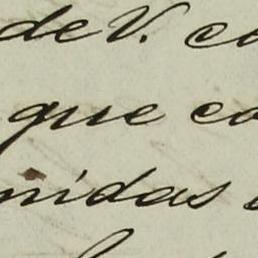 de V. co
que co
nidas